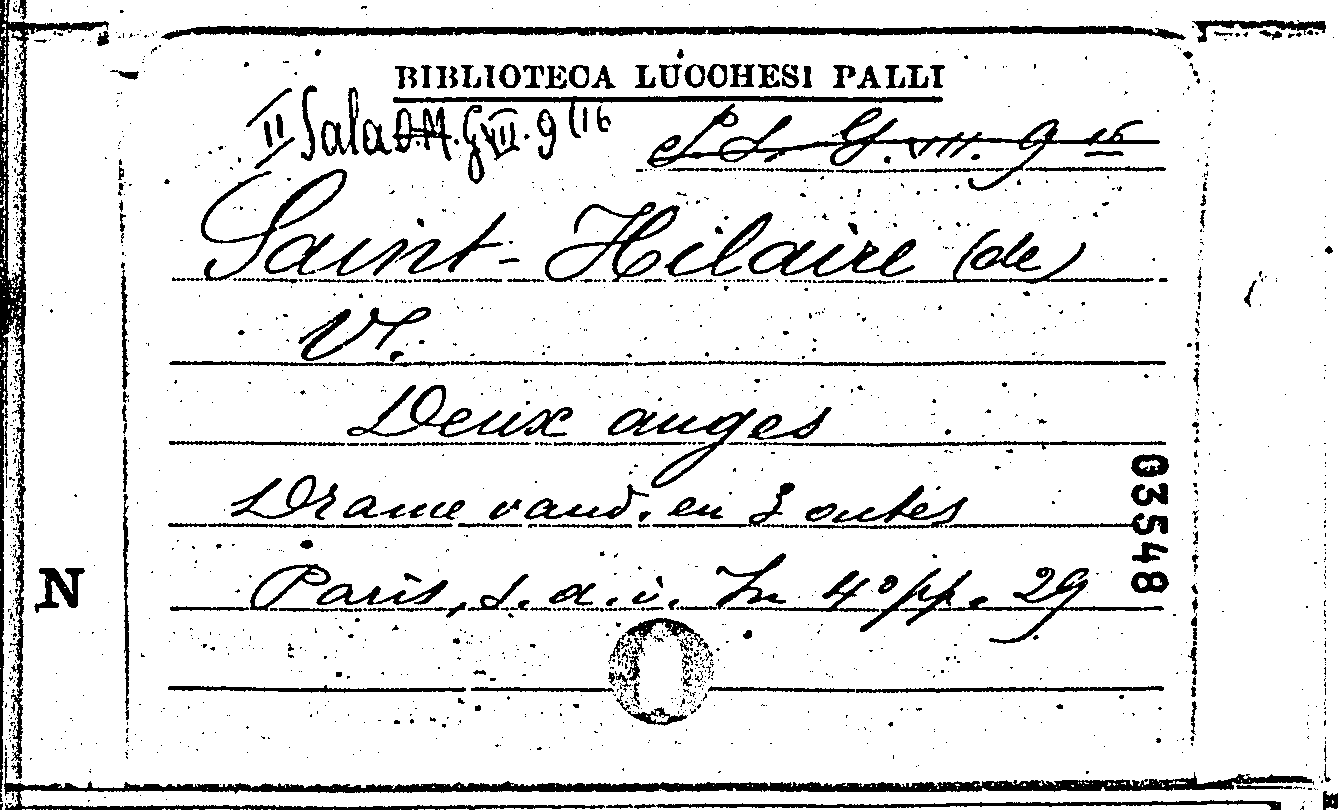 BIBLIOTECA LUCCHESI PALLI
II Sala O.M. G VII. 9 (16
S. L. G. VII. 9 16
Saint-Hilaire (de)
V.
Deux anges
Drame vaud. en 3 actes
Paris, s. d. i. In 4° pp. 29
03548
N